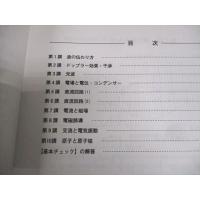 目 次
第1講 波の伝わり方
第2講 ドップラー効果・干渉
第3講 光波
第4講 電場と電位・コンデンサー
第5講 直流回路(1)
第6講 直流回路(2)
第7講 電流と磁場
第8講 電磁誘導
第9講 交流と電気振動
第10講 原子と原子核
【基本チェック】の解答